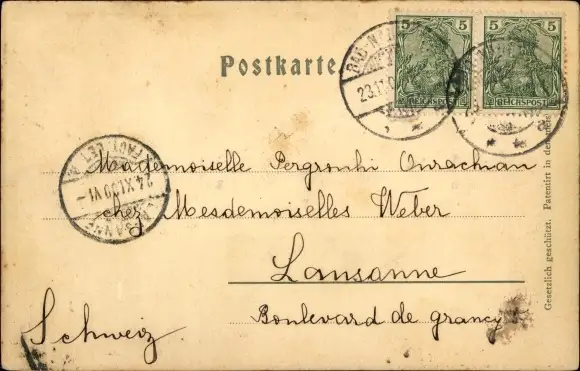 Postkarte
5 5
REICHSPOST REICHSPOST
BAD-NAU
23.11.0
24.XI.00.VI-
Mademoiselle
chez Mesdemoiselles Weber
Lausanne
Boulevard de grancy
Schweiz
Gesetzlich geschützt. Patentirt in